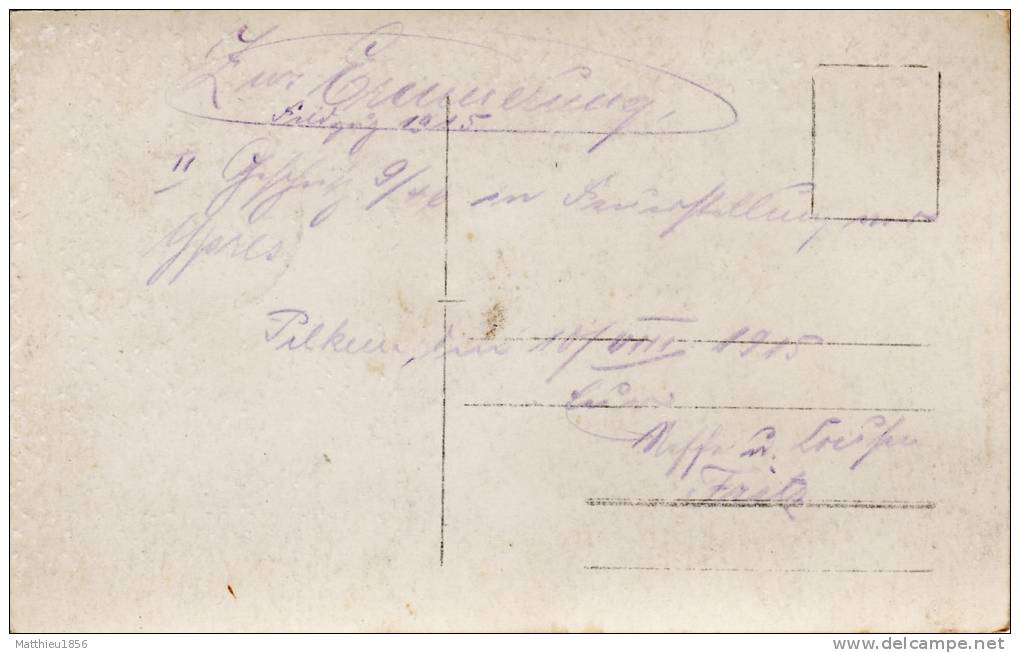 Zur Erinnerung
Feldzug 1915.
II Geschütz 9/ in Feuerstellung vor
Ypres
Pilkem, den 10/VIII 1915
Euer
Neffe u.
Fritz
Matthieu1856
delcampe.net